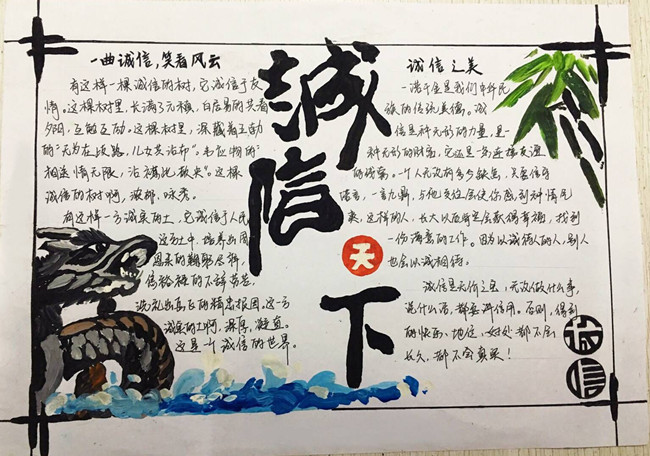 一曲诚信,笑看风云
有这样一棵诚信的树,它诚信于友
情。这棵树里,长满了元稹、白居易的笑看
夕阳,互敬互动。这棵树里,深藏着王勃
的"无为在歧路,儿女共沾巾"。韦应物的
"相送情无限,沾襟比散丝"。这棵
诚信的树啊,浓郁,咏秀。
有这样一方诚实的土,它诚信于人民
这方土中,培养出周
恩来的鞠躬尽瘁,
焦裕禄的不辞劳苦,
洗礼出岳飞的精忠报国,这一方
诚实的土啊,深厚,凝重。
这是一个诚信的世界。
誠信
天
下
诚信之美
一诺千金是我们中华民
族的传统美德。诚
信是种无形的力量,是一
种无形的财富,它还是一旁连接友谊
的。一个人无论有多少缺点,只要信守
诺言,一言九鼎,与他交往会使你感到神情见
爽,这样的人,长大以后肯定会获得幸福,找到
一份满意的工作。因为以诚待人的人,别人
也会以诚相待。
诚信是无价之宝,无论做什么事,
说什么话,都要讲信用。否则,得到
的快乐、地位、好处都不会
长久,都不会真实!
诚
信